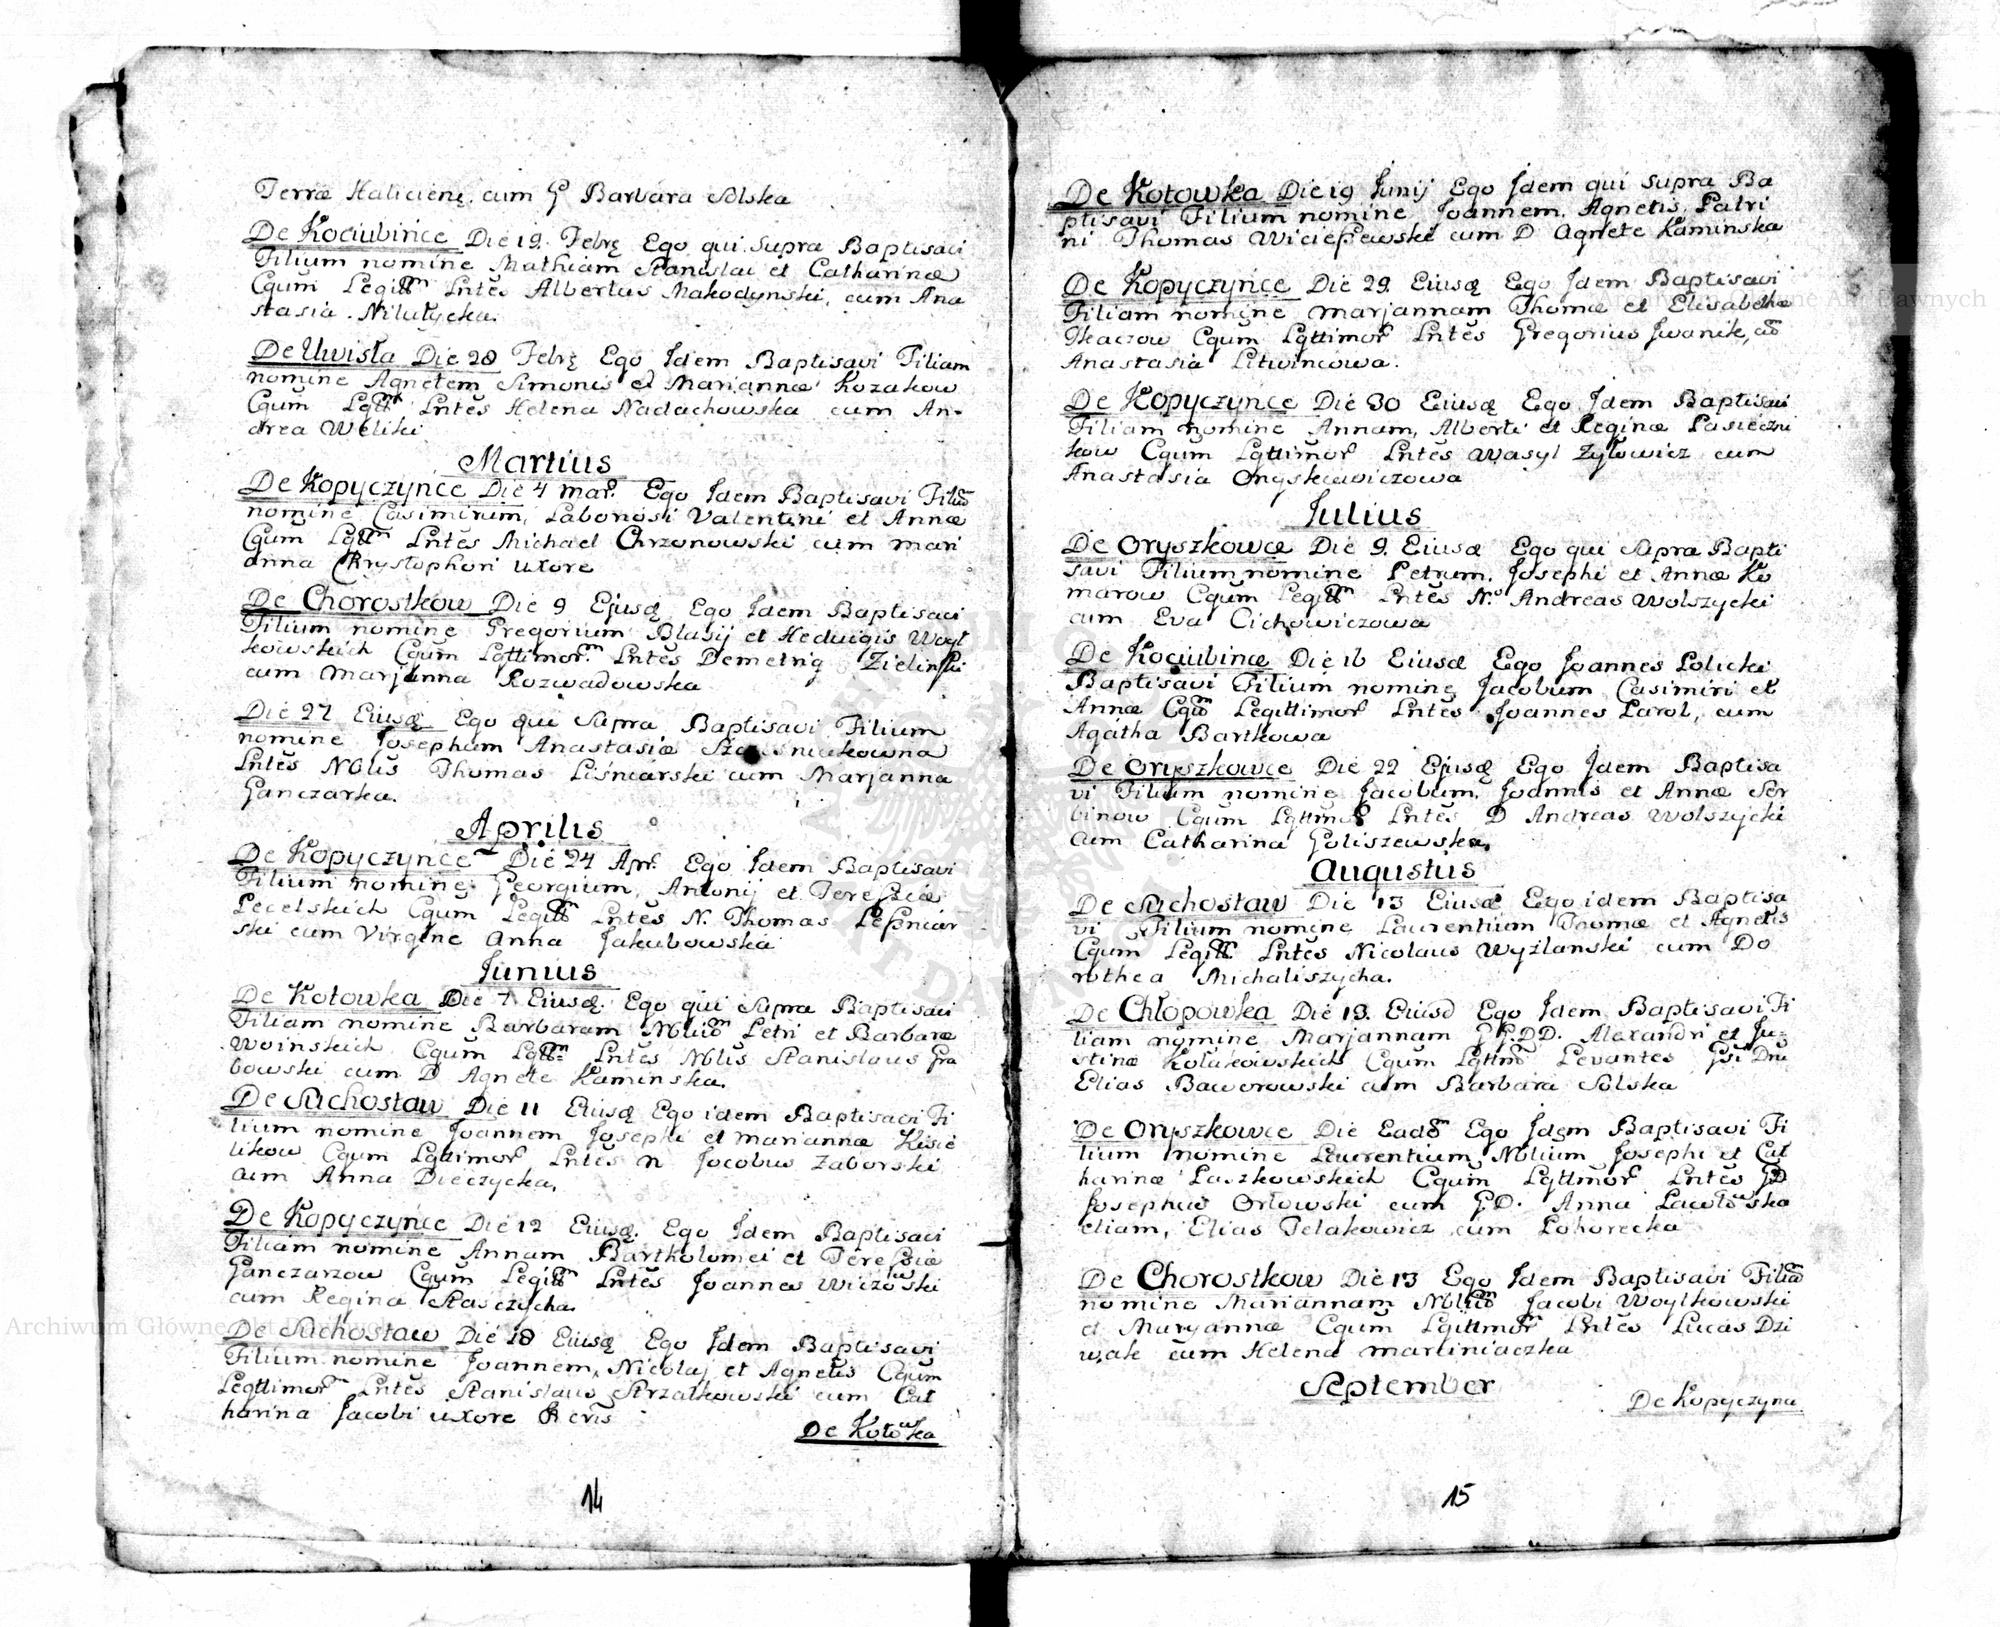 Terræ Haliciens, cum G Barbara Solska
De Kociubince Die 19. Febrę Ego qui Supra Baptisavi
Filium nomine Mathiam Stanislai et Catharinæ
Cgum Legitt̃m Lñtes Albertus Makodynski, cum Ana
stasia Nilutycka.
De Uwisła Die 28 Febrę Ego Idem Baptisavi Filiam
nomine Agnetem Simonis et Mariannæ Kozakow
Cgum Lgtt̃m Lñtes Helena Nadachowska cum An-
drea Weliki
Martius
De Kopyczynce Die 4 Mar. Ego Idem Baptisavi Filiũ
nomine Casimirum, Laborıosi Valentini et Annæ
Cgũm Lgtt̃m Lñtes Michael Chrzonowski cum Mari
anna Chrystophori uxore
De Chorostkow Die 9 Ejusdę Ego Idem Baptisavi
Filium nomine Gregorium Blasij et Hedwigis Woyt
kowskich Cgum Lgttimor̃m Lñtes Demetrıg Zielinski
cum Marjanna Rozwadowska
Die 27 Eiusdę Ego qui Supra Baptisavi Filium
nomine Josephum Anastasiæ
Lñtes Nblis Thomas Liśniarski cum Marjanna
Ganczarka.
Aprilis
De Kopyczynce Die 24 Apr. Ego Idem Baptisavi
Filium nomine Georgium, Antonij et Teressiæ
Pecelskich Cgum Legitt̃m Lñtes N. Thomas Lessniar
ski cum Virgine Anna Jakubowska
Junius
De Kotowka Die 7 Eiusdę. Ego qui Supra Baptisavi
Filiam nomine Barbaram Nbliũ Petri et Barbaræ
Woinskich Cgum Lgtt̃m Lñtes Nblis Stanislaus Gra
bowski cum D Agnete Kaminska.
De Suchostaw Die 11 Eiusdę Ego idem Baptisavi Fi
lium nomine Joannem Josephi et Mariannæ Kisie
likow Cgum Lgttimor̃ Lñtes N Jacobus Zaborski
cum Anna Dieczycka.
De Kopyczynce Die 12 Eiusdę. Ego Idem Baptisavi
Filiam nomine Annam Bartholomei et Teressiæ
Ganczarzow Cgum Legitt̃m Lñtes Joannes Wiczowski
cum Regina Stasczycha.
De Suchostaw Die 18 Eiusdę Ego Idem Baptisavi
Filium nomine Joannem, Nicolaj et Agnetis Cgum
Legttimor̃m Lñtes Stanislaus Strzałkowski cum Cat
harina Jacobi uxore
De Kotowka
14
De Kotowka Die 19 Junij Ego Idem qui supra Ba
ptisavi Filium nomine Joannem, Agnetis, Patri
ni Thomas Wiciessewski cum D Agnete Kaminska
De Kopyczynce Die 29. Eiusdę Ego Idem Baptisavi
Filiam nomine Marjannam Thomæ et Elisabethæ
Tkaczow Cgum Lgttimor̃ Lñtes Gregorius Iwanik, cũ
Anastasia Litwincowa.
De Kopyczynce Die 30 Eiusdę Ego Idem Baptisavi
Filiam nomine Annam, Alberti et Reginæ Pasieczni
kow Cgum Lgttimor̃ Lñtes Wasyl Zyłowicz cum
Anastasia Onyskiewiczowa
Julius
De Oryszkowce Die 9. Eiusdę Ego qui Supra Bapti
savi Filium nomine Petrum. Josephi et Annæ Ko
marow Cgum Legitt̃m Lñtes N. Andreas Wolszycki
cum Eva Cichowiczowa
De Kociubince Die 16 Eiusdę Ego Joannes Policki
Baptisavi Filium nomine Jacobum Casimiri et
Annæ Cgũ Legittimor̃ Lñtes Joannes Parol, cum
Agatha Bartkowa
De Oryszkowce Die 22 Ejusdę Ego Idem Baptisa
vi Filium nomine Jacobum, Joannis et Annæ Ser
binow Cgum Lgttimor̃ Lñtes D Andreas Wolszycki
cum Catharina Goliszewska.
Augustus
De Suchostaw Die 13 Eiusdę Ego idem Baptisa
vi Filium nomine Laurentium Thomæ et Agnetis
Cgum Legitt̃ Lñtes Nicolaus Wyżlanski cum Do
rothea Michaliszycha.
De Chłopowka Die 13. Eiusd Ego Idem Baptisavi Fi
liam nomine Marjannam G.G.DD. Alexandri et Ju-
stinæ Kolukowskich Cgum Lgttm̃ Levantes Gsi Dnũ
Elias Baworowski cum Barbara Solska
De Oryszkowce Die Eadẽ Ego Idem Baptisavi Fi
lium nomine Laurentium Nblium Josephi et Cat
harinæ Laszkowskich Cgum Lgttimor̃ Lñtes GD
Josephus Orłowski cum GD. Anna
etiam, Elias Pelakowicz cum Pohorecka
De Chorostkow Die 13 Ego Idem Baptisavi Filiã
nomine Mariannam Nbliũ Jacobi Woytkowski
et Maryannæ Cgum Lgittimor̃ Lñtes Lucas Dzi
wak cum Helena Martiniaczka
September
De Kopyczyna
15
Archiwum Główne Akt Dawnych
Archiwum Główne Akt Dawnych